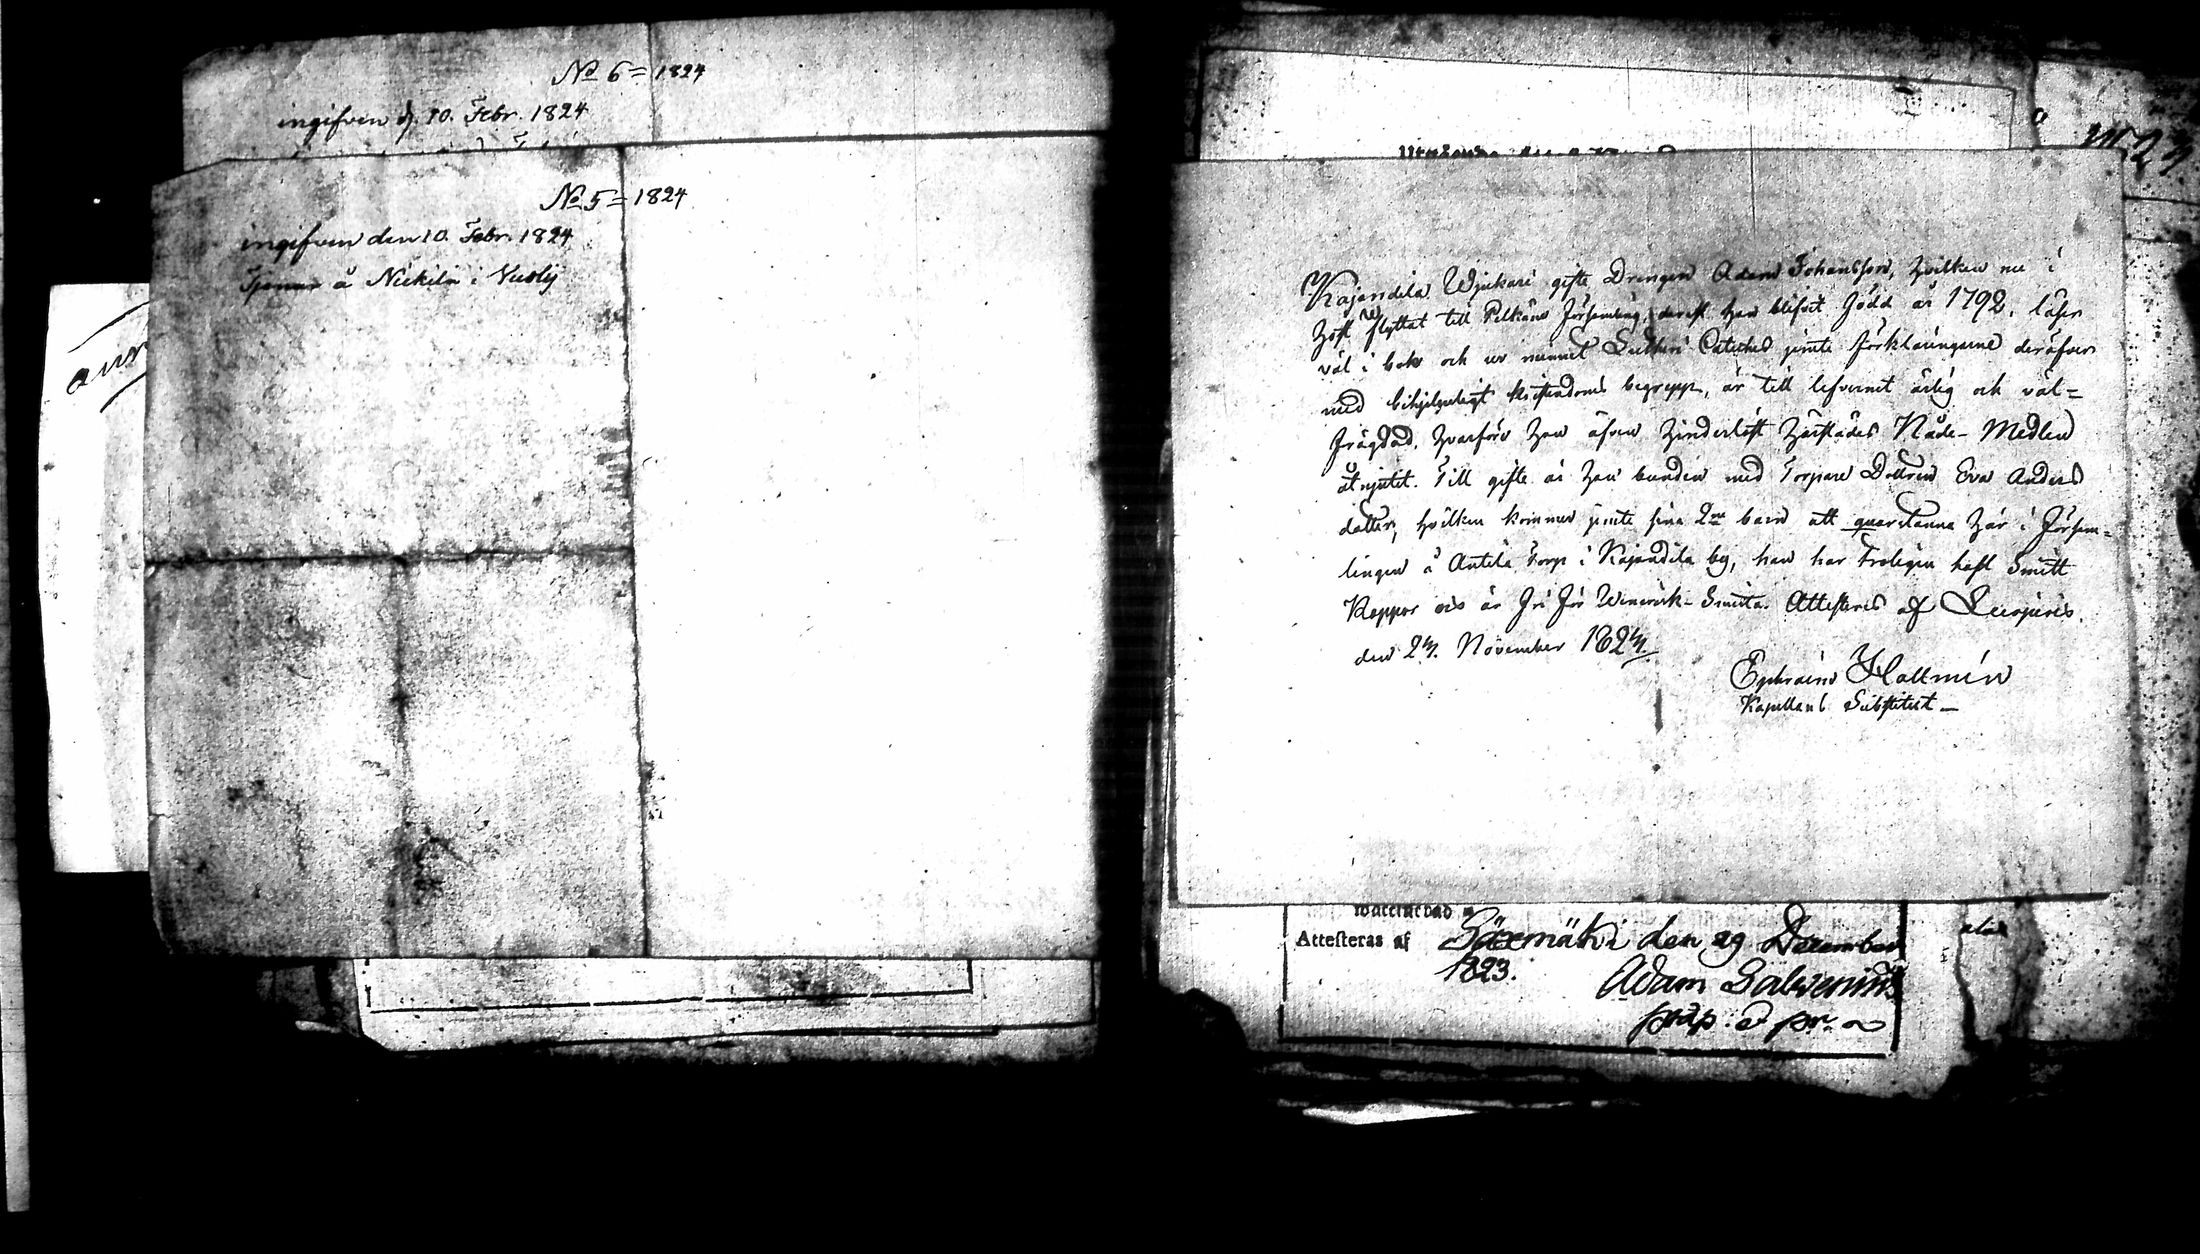 No 6 = 1824
ingifven d. 10. Febr. 1824
No 5 = 1824
ingifven den 10. Febr. 1824
Tjenar å Nickilä i
Kajandila Wjukari gifte Drengen Adam Johansson, hvilken nu i
höst flyttat till Pelkäne Församling, derest han blifvit född år 1792, läser
väl i bok och ur minnet Lutheri Catches jemte förklaringarne deröfver
med behjelpeligt kristendoms begrepp, är till lefvernet ärlig och väl=
frägdad, hvarföre han äfven hinderlöst härstädes Nåde-Medlen
åtnjutit. Till gifte är han bunden med Torpare Dottren Eva Anders
dotter, hvilken kommer jemte sina 2ne barn att qvarstanna här i Försam=
lingen å Antila Torp i Kajandila by, han har Troligen haft Smitt
Koppor och är fri för Venerisk-Smitta. Attesteras af
den 24. November 1824.
Ephraim Hallmén
Kapellans Substitut
Attesteras af Säxmäki den 29 December
1823.
Adam
præp. &